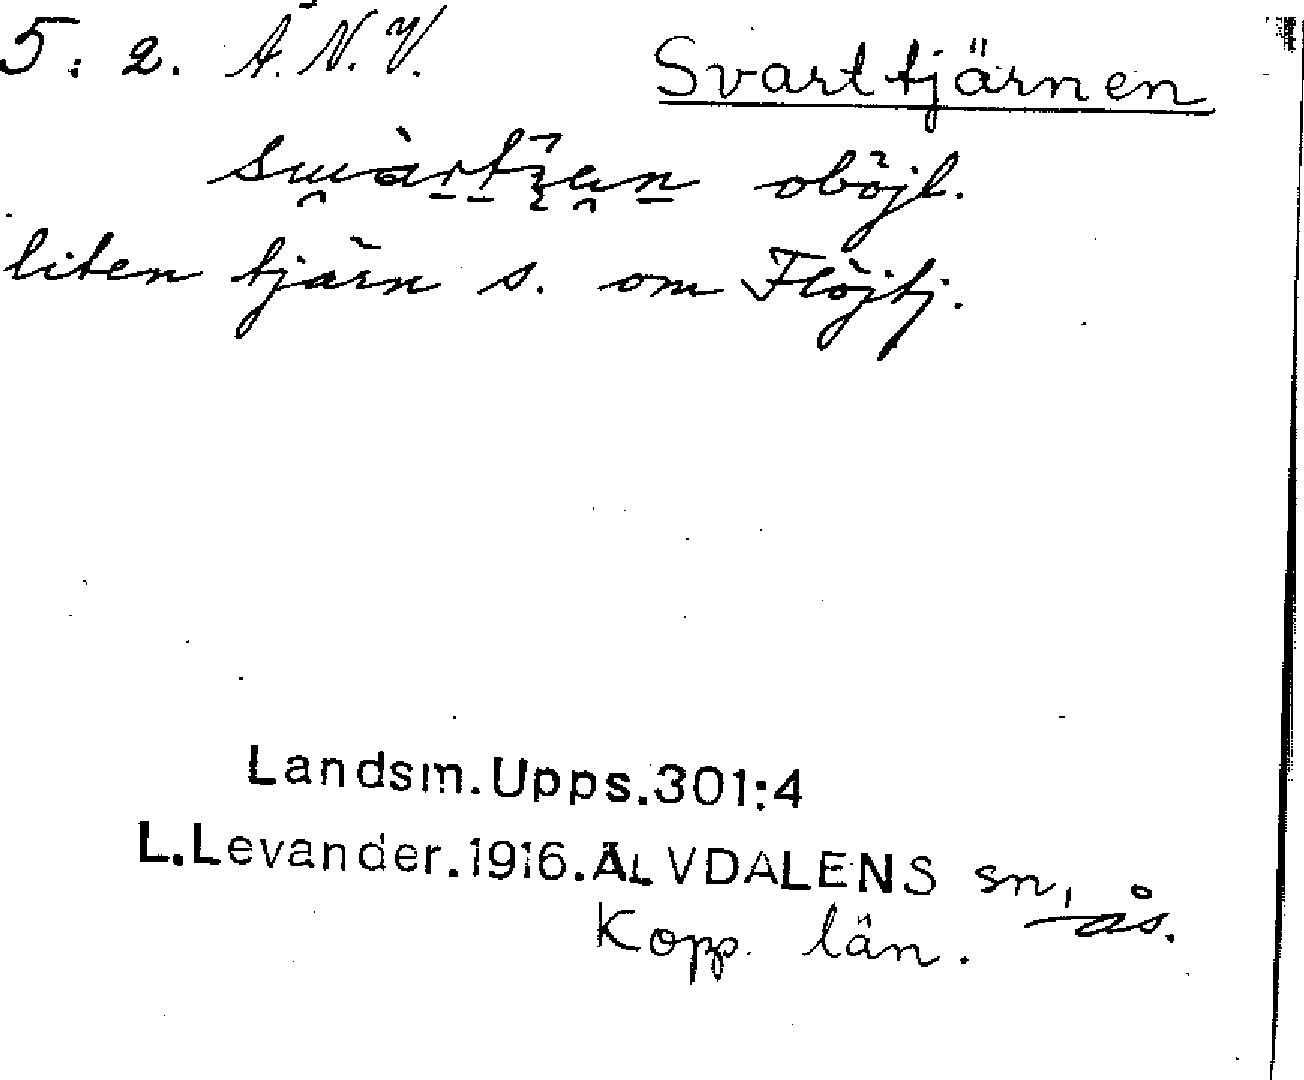 5: 2. Ä. N. V. Svarttjärnen
oböjl.
liten tjärn s. om Flöjtj.
Landsm.Upps.301:4
L.Levander.1916.ÄLVDALENS sn, ås.
Kopp. län.